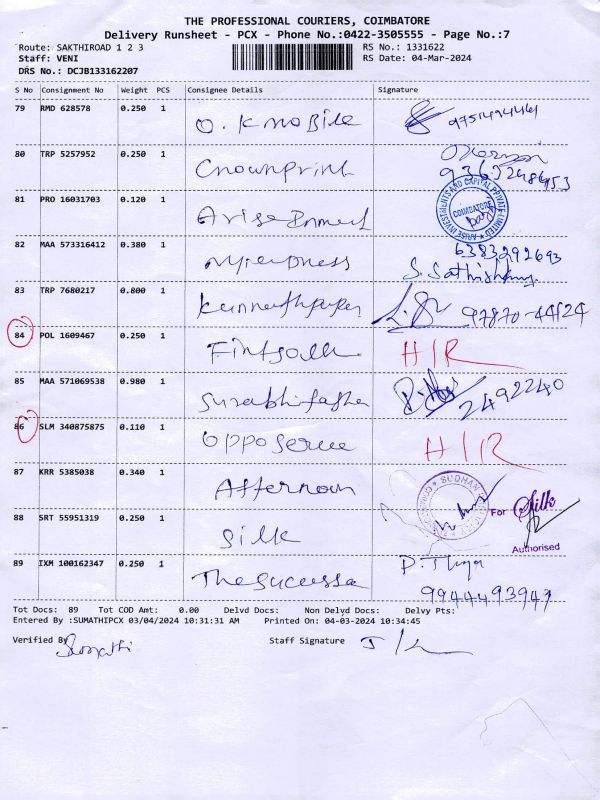 THE PROFESSIONAL COURIERS, COIMBATORE
Delivery Runsheet - PCX - Phone No.:0422-3505555 - Page No.:7
Route: SAKTHIROAD 1 2 3 RS No.: 1331622
Staff: VENI RS Date: 04-Mar-2024
DRS No.: DCJB133162207
S No Consignment No Weight PCS Consignee Details Signature
79 RMD 628578 0.250 1 O.K mobile 9751494461
80 TRP 5257952 0.250 1 Crownprint
81 PRO 16031703 0.120 1 Arise ARISE INVESTMENTS AND CAPITAL PRIVATE LIMITED COIMBATORE
82 MAA 573316412 0.380 1 6383292693
S. Sathish
83 TRP 7680217 0.800 1 97870-44124
84 POL 1609467 0.250 1 H/R
85 MAA 571069538 0.980 1 2492240
86 SLM 340875875 0.110 1 Oppo Service H/R
87 KRR 5385038 0.340 1 Afternoon SUDHAN
88 SRT 55951319 0.250 1 Silk For Silk
Authorised
89 IXM 100162347 0.250 1 The Successa P. Thiya
9944493949
Tot Docs: 89 Tot COD Amt: 0.00 Delvd Docs: Non Delvd Docs: Delvy Pts:
Entered By :SUMATHIPCX 03/04/2024 10:31:31 AM Printed On: 04-03-2024 10:34:45
Verified By Sumathi Staff Signature